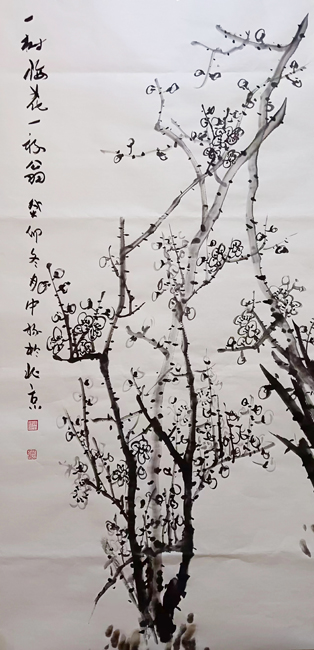 一树梅花一放翁 癸卯冬月中楊於北京